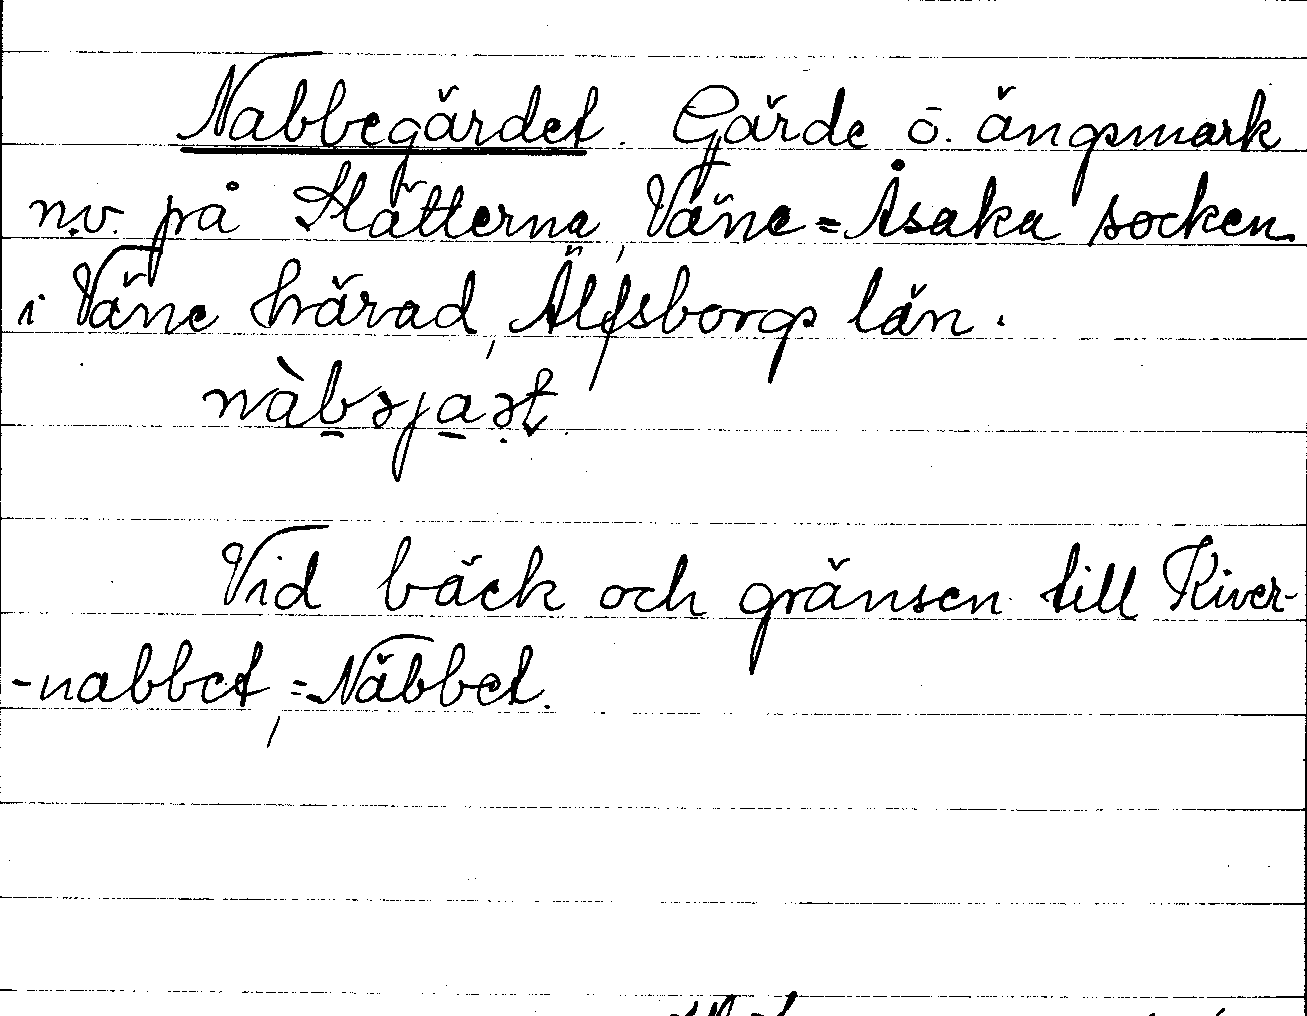 Nabbegärdet. Gärde o. ängsmark
n.v. på Slätterna, Väne=Åsaka socken
i Väne härad, Älfsborgs län.
nàbəjaət.
Vid bäck och gränsen till Kiver-
-nabbet, =Näbbet.